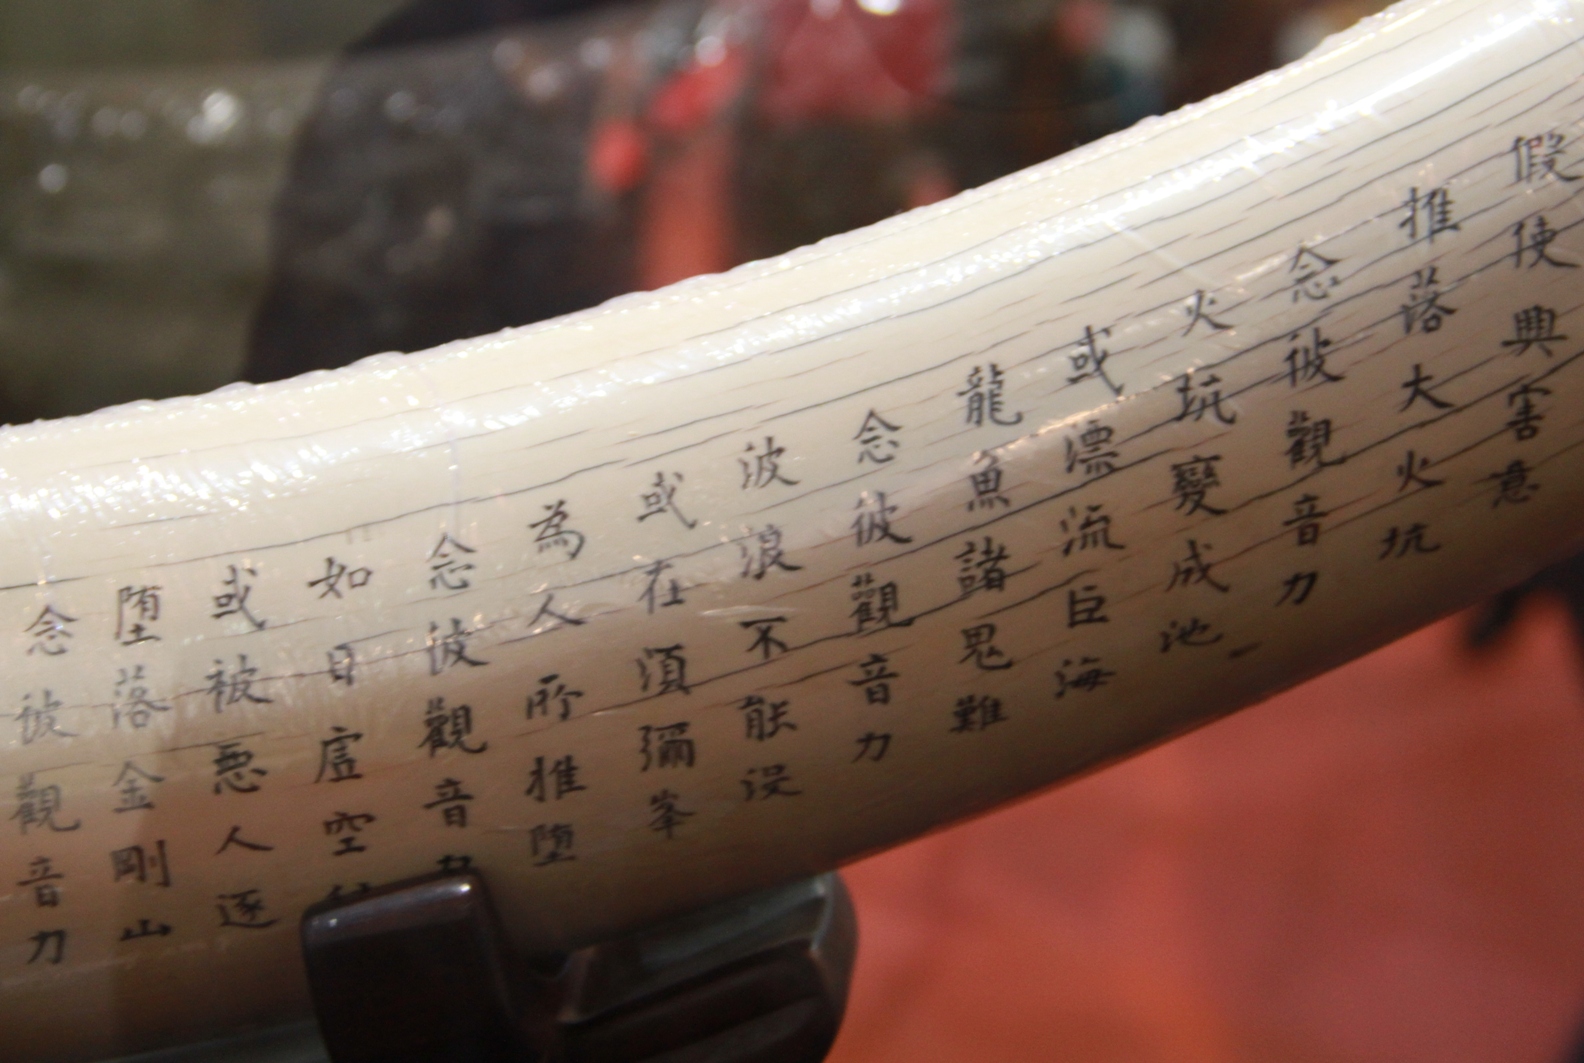 假使興害意
推落大火坑
念彼觀音力
火坑變成池
或漂流巨海
龍魚諸鬼難
念彼觀音力
波浪不能没
或在須彌峯
為人所推堕
念彼觀音力
如日虛空
或被悪人逐
堕落金剛山
念彼觀音力